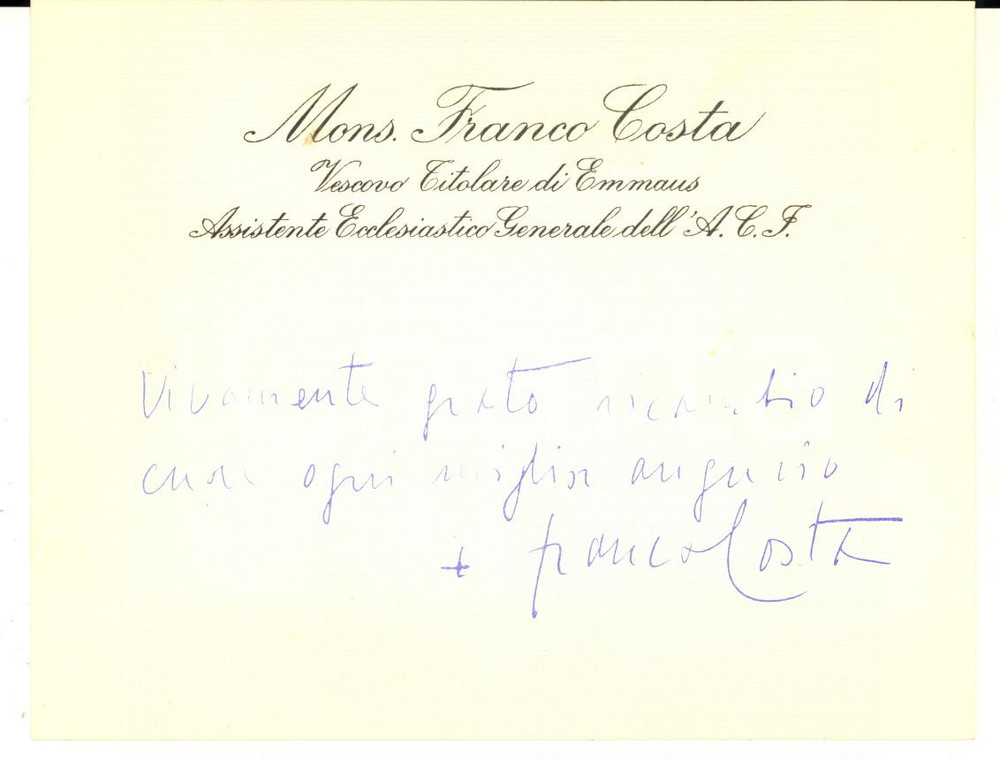 Mons. Franco Costa
Vescovo Titolare di Emmaus
Assistente Ecclesiastico Generale dell'A.C.I.
Vivamente grato ricambio di
cuore ogni miglior augurio
+ Franco Costa